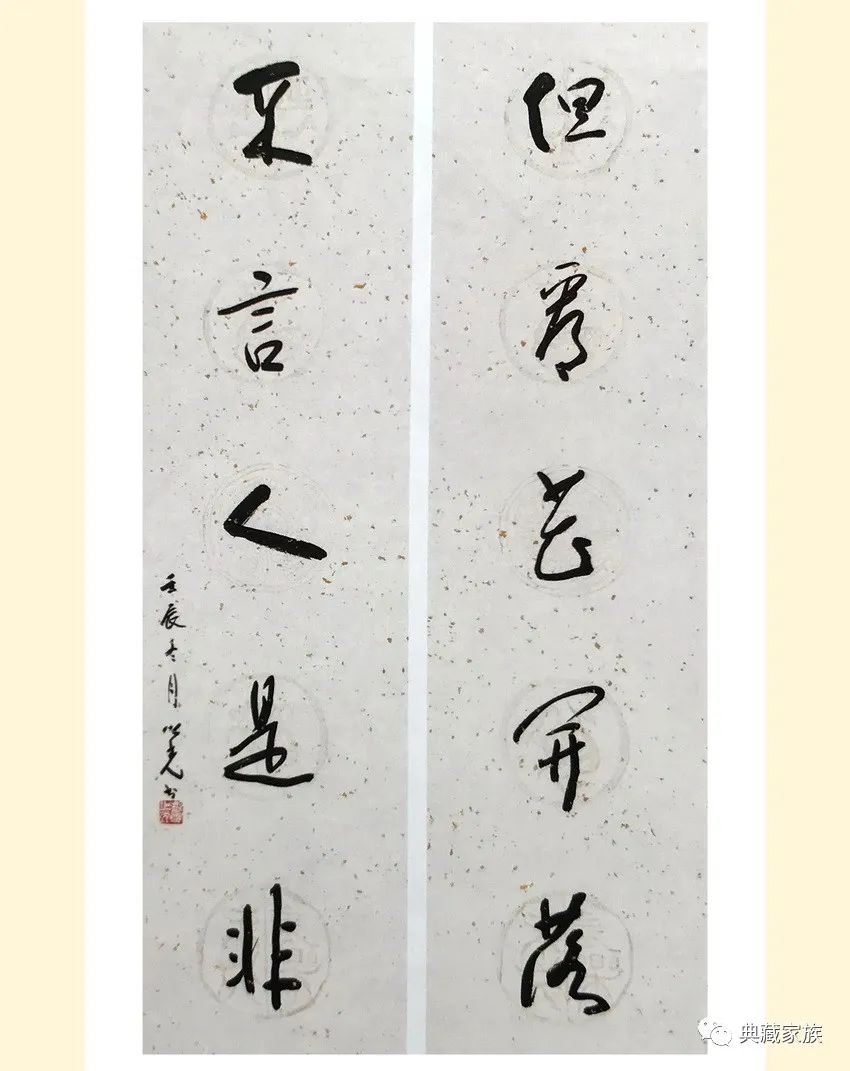 但看花開落
不言人是非
壬辰冬月
典藏家族